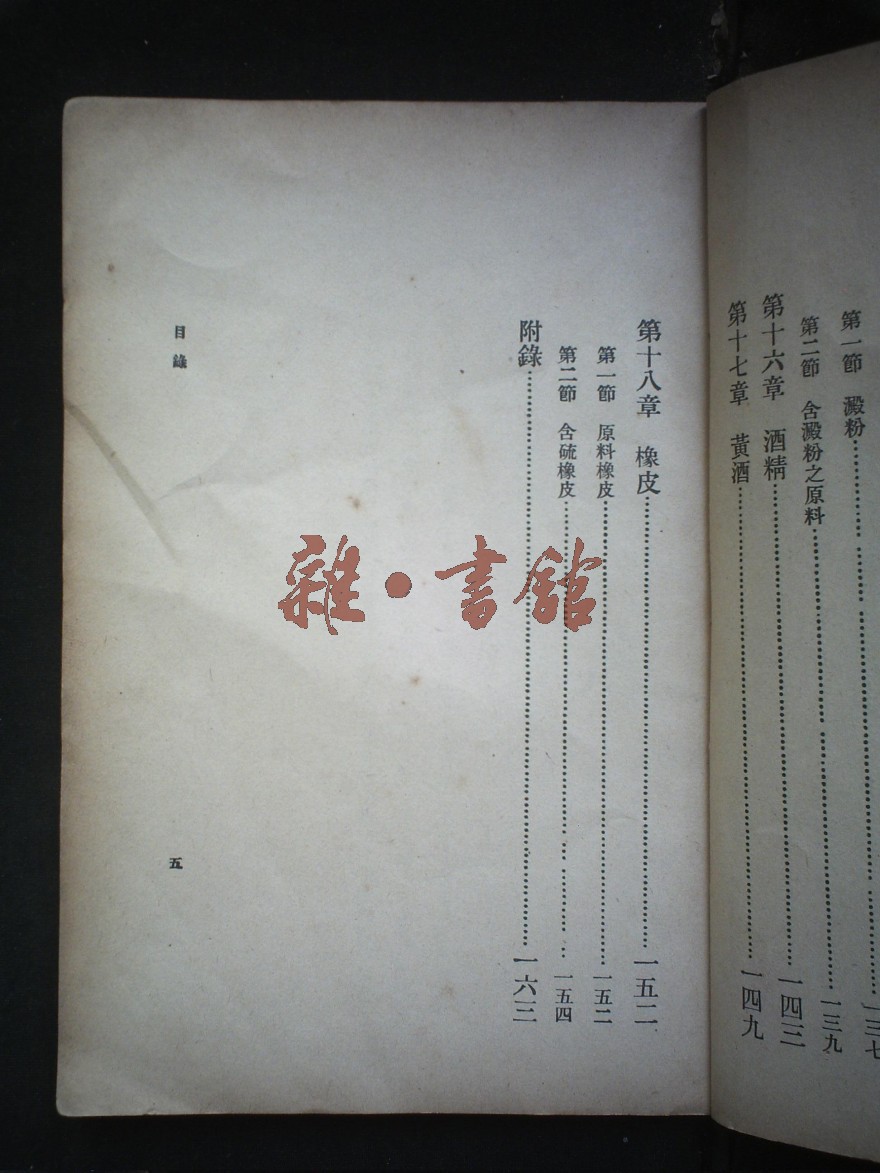 第一節　澱粉……一三七
第二節　含澱粉之原料……一三九
第十六章　酒精……一四三
第十七章　黃酒……一四九
第十八章　橡皮……一五二
第一節　原料橡皮……一五二
第二節　含硫橡皮……一五四
附錄……一六三
目錄
五
雜·書館